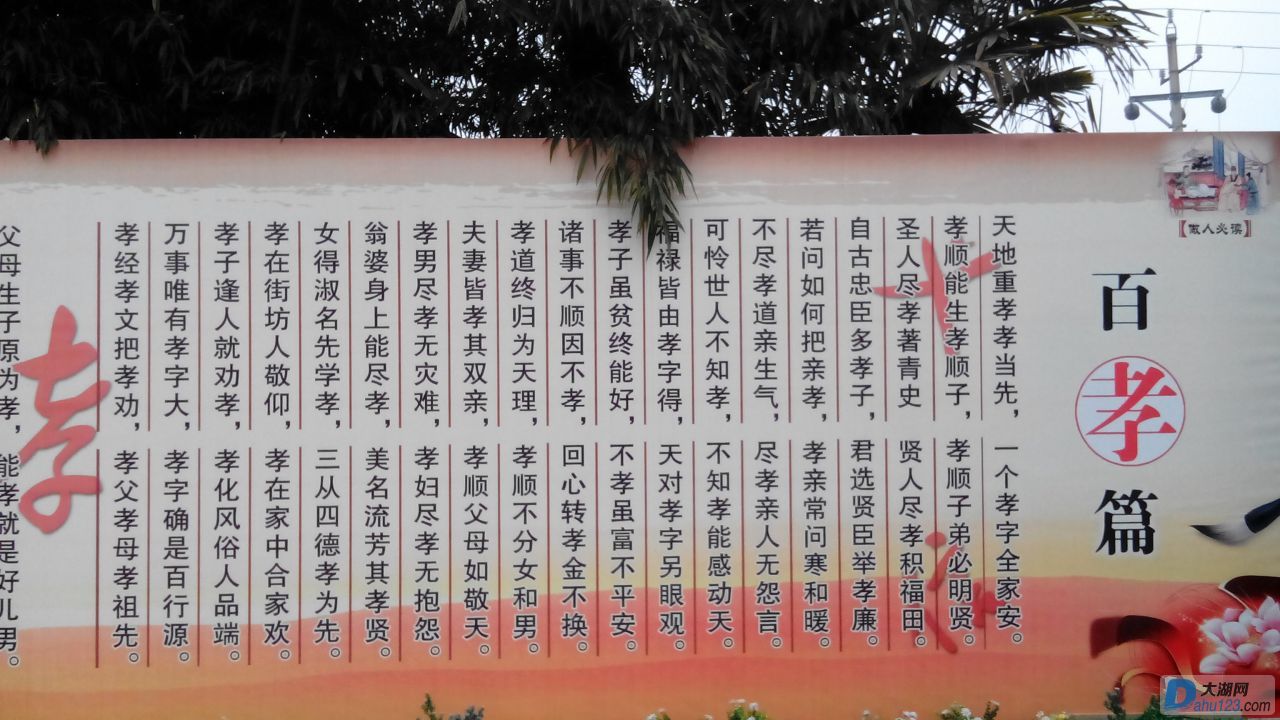 做人必读
百孝篇
天地重孝孝当先，一个孝字全家安。
孝顺能生孝顺子，孝顺子弟必明贤。
圣人尽孝著青史 贤人尽孝积福田。
自古忠臣多孝子，君选贤臣举孝廉。
若问如何把亲孝，孝亲常问寒和暖。
不尽孝道亲生气，尽孝亲人无怨言。
可怜世人不知孝，不知孝能感动天。
福禄皆由孝字得，天对孝字另眼观。
孝子虽贫终能好，不孝虽富不平安。
诸事不顺因不孝，回心转孝金不换。
孝道终归为天理，孝顺不分女和男。
夫妻皆孝其双亲，孝顺父母如敬天。
孝男尽孝无灾难，孝妇尽孝无抱怨。
翁婆身上能尽孝，美名流芳其孝贤。
女得淑名先学孝，三从四德孝为先。
孝在街坊人敬仰，孝在家中合家欢。
孝子逢人就劝孝，孝化风俗人品端。
万事唯有孝字大，孝字确是百行源。
孝经孝文把孝劝，孝父孝母孝祖先。
父母生子原为孝，能孝就是好儿男。
孝
大湖网
Dahu123.com